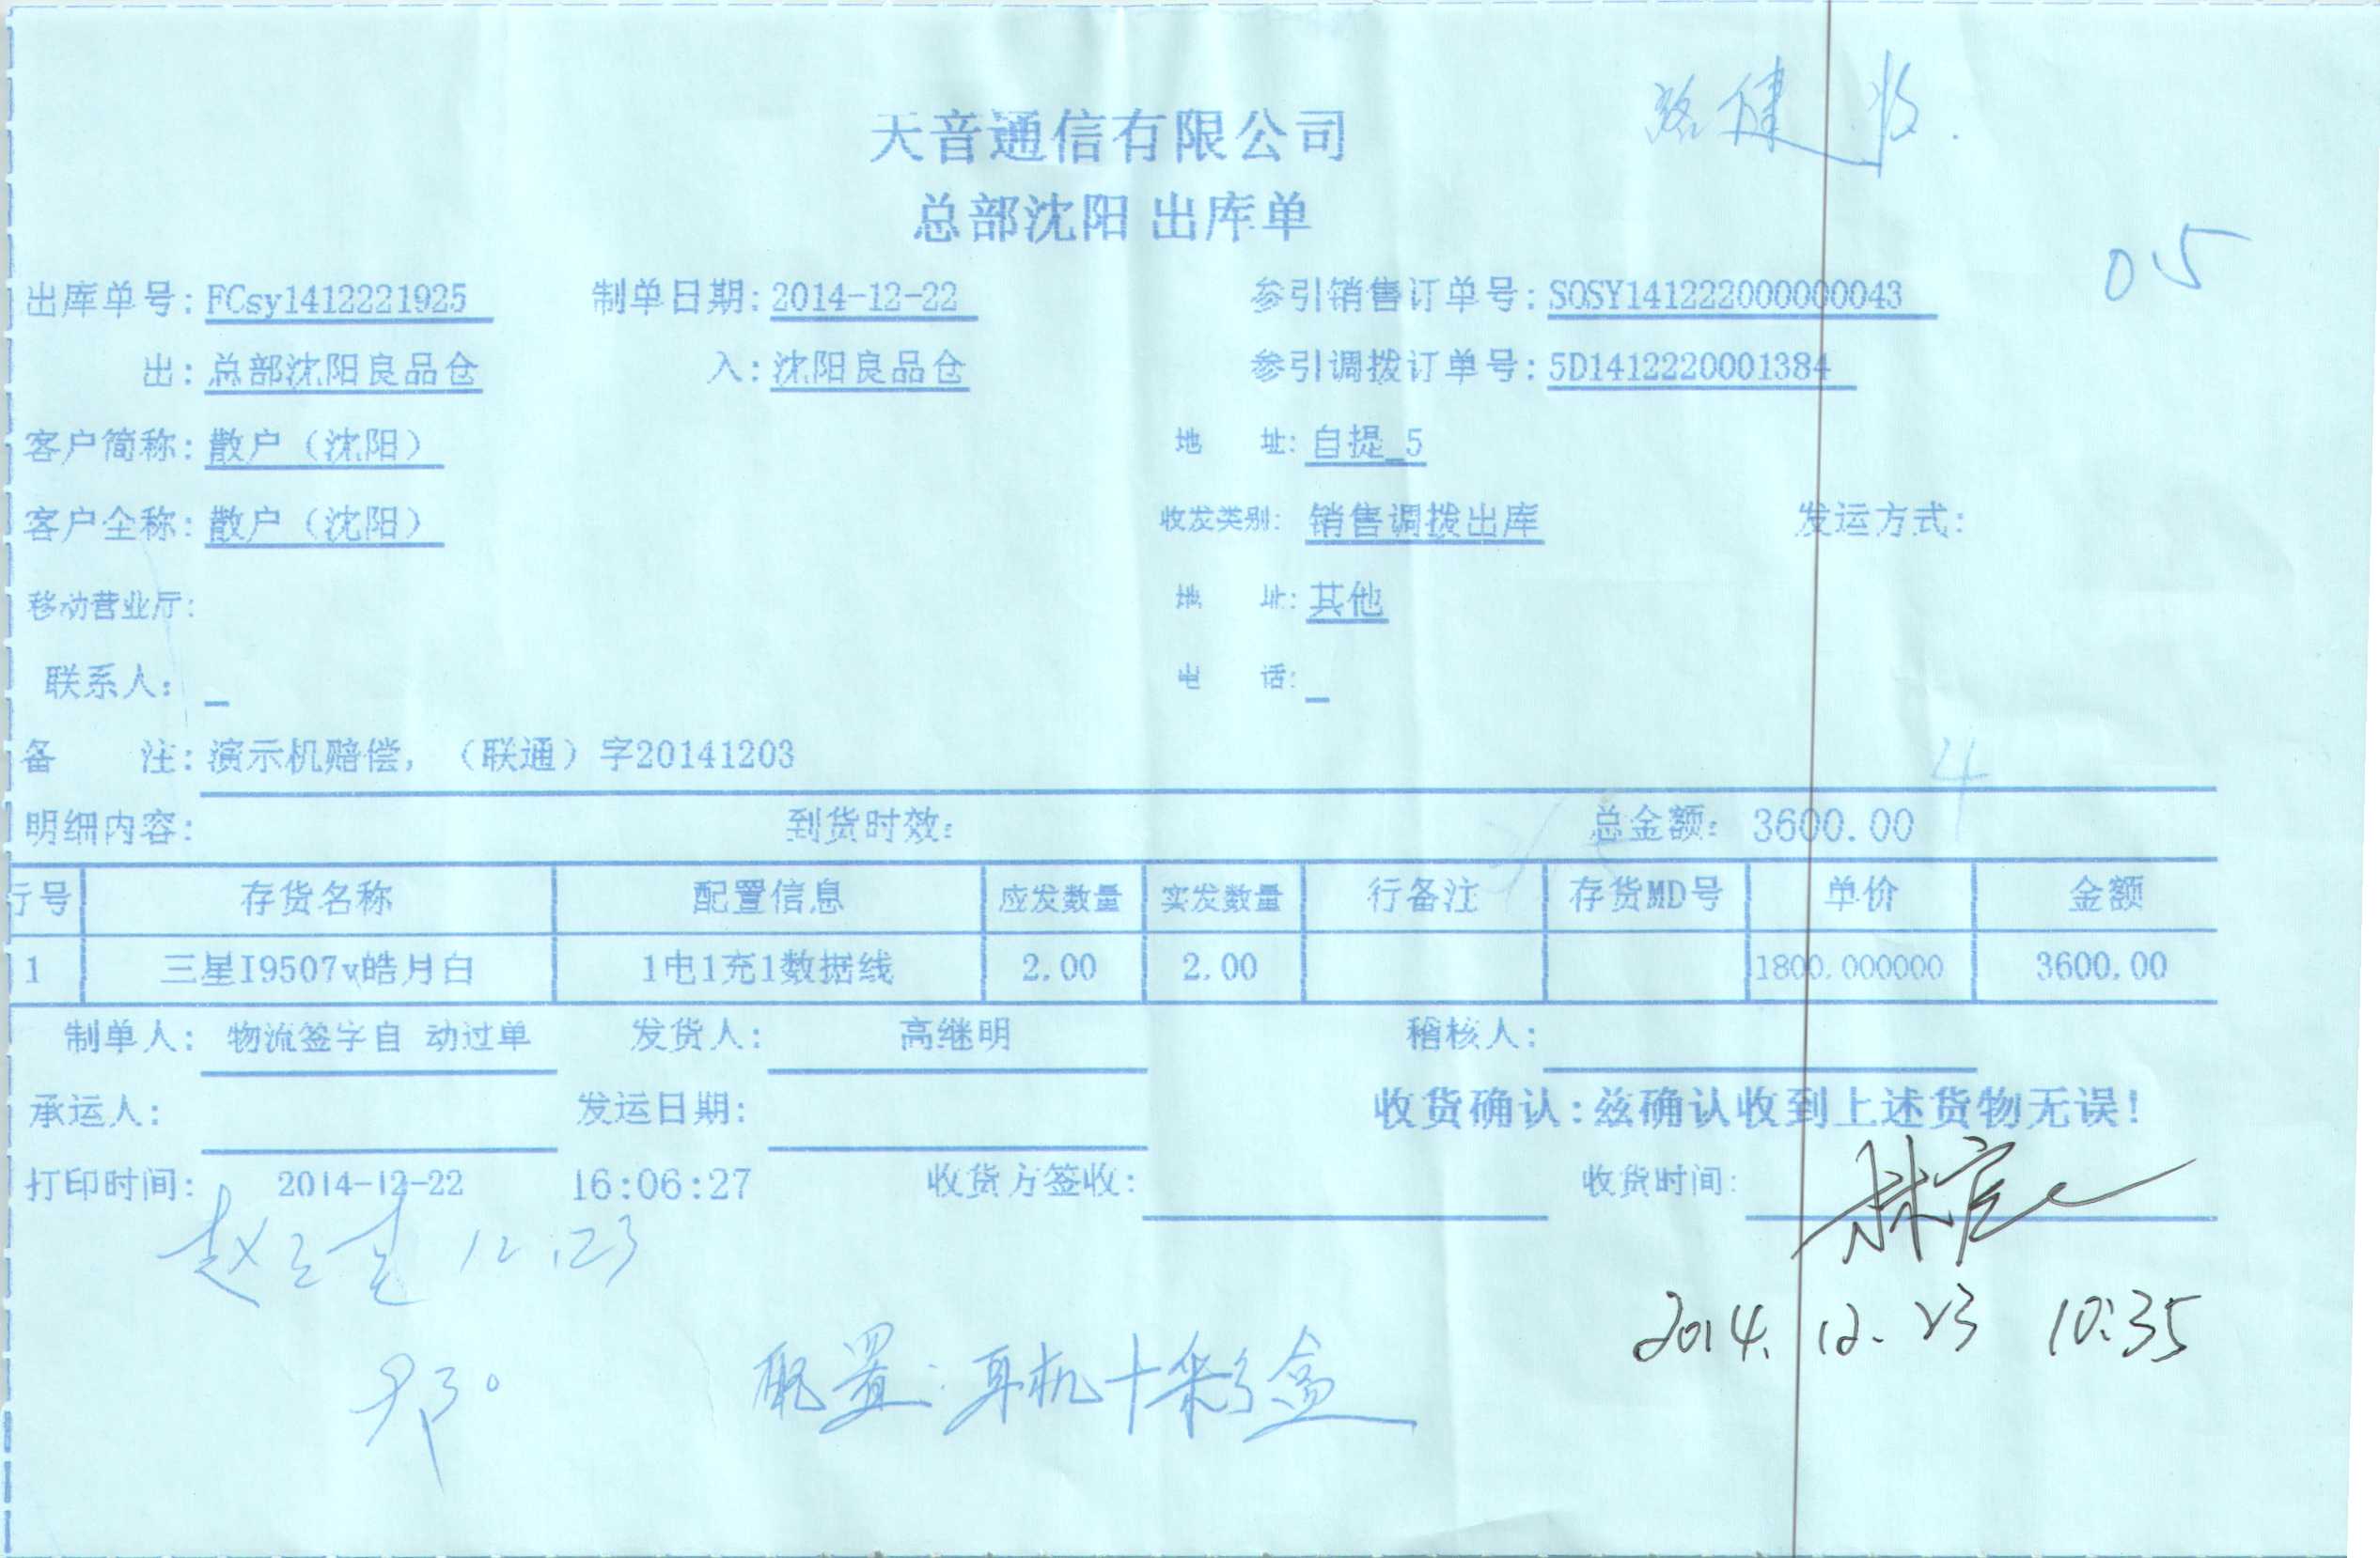 天音通信有限公司
总部沈阳 出库单
05
出库单号: FCsy1412221925 制单日期: 2014-12-22 参引销售订单号: SOSY141222000000043
出: 总部沈阳良品仓 入: 沈阳良品仓 参引调拨订单号: 5D1412220001384
客户简称: 散户（沈阳） 地 址: 自提_5
客户全称: 散户（沈阳） 收发类别: 销售调拨出库 发运方式:
移动营业厅: 地 址: 其他
联系人: _ 电 话: _
备 注: 演示机赔偿，（联通）字20141203
明细内容: 到货时效: 总金额: 3600.00
行号 存货名称 配置信息 应发数量 实发数量 行备注 存货MD号 单价 金额
1 三星I9507v皓月白 1电1充1数据线 2.00 2.00 1800.000000 3600.00
制单人: 物流签字自 动过单 发货人: 高继明 稽核人:
承运人: 发运日期: 收货确认:兹确认收到上述货物无误!
打印时间: 2014-12-22 16:06:27 收货方签收: 收货时间:
12.23
配置:耳机+彩盒
2014.12.23 10:35